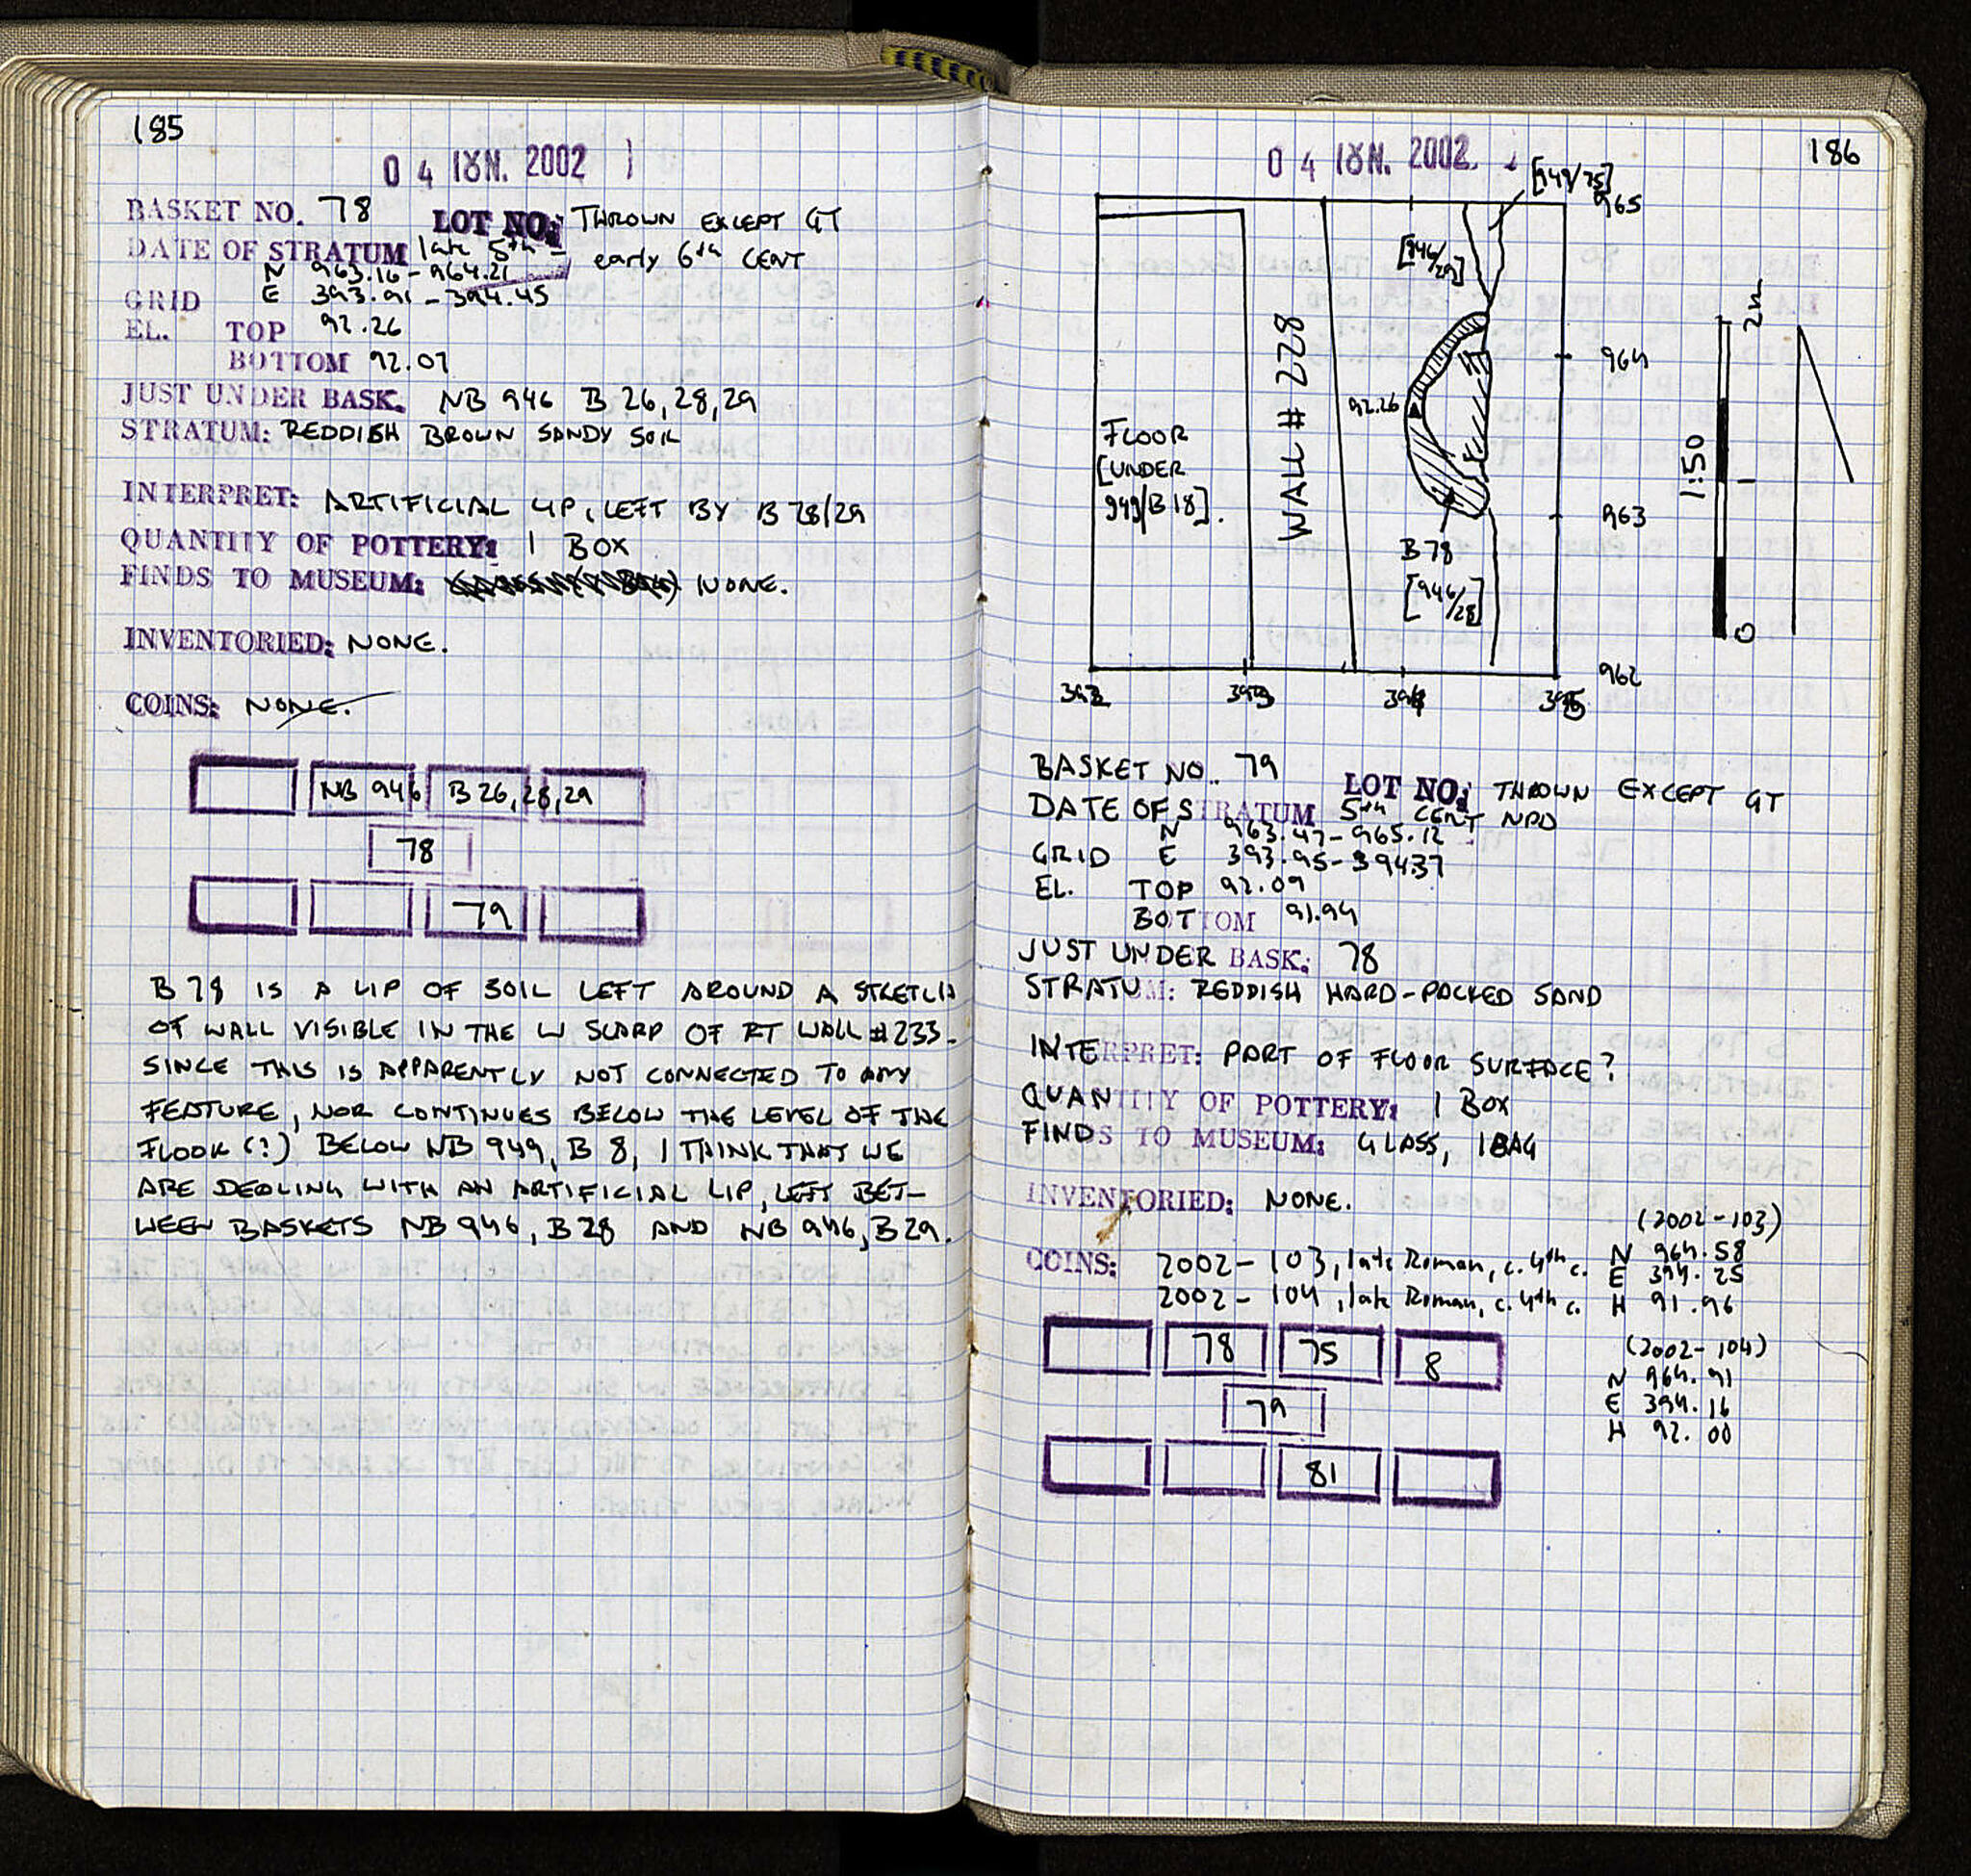 185
04 ΙΟΥΝ. 2002
BASKET NO. 78 LOT NO: THROWN EXCEPT GT
DATE OF STRATUM late 5th - early 6th CENT
N 963.16-964.21
GRID E 393.91-394.45
EL. TOP 92.26
BOTTOM 92.07
JUST UNDER BASK. NB 946 B 26,28,29
STRATUM: REDDISH BROWN SANDY SOIL
INTERPRET: ARTIFICIAL LIP, LEFT BY B 28/29
QUANTITY OF POTTERY: 1 BOX
FINDS TO MUSEUM: NONE.
INVENTORIED: NONE.
COINS: NONE.
NB 946 B 26,28,29
78
79
B 78 IS A LIP OF SOIL LEFT AROUND A STRETCH
OF WALL VISIBLE IN THE W SCARP OF RT WALL #233.
SINCE THIS IS APPARENTLY NOT CONNECTED TO ANY
FEATURE, NOR CONTINUES BELOW THE LEVEL OF THE
FLOOR (?) BELOW NB 949, B 8, I THINK THAT WE
ARE DEALING WITH AN ARTIFICIAL LIP, LEFT BET-
WEEN BASKETS NB 946, B28 AND NB 946, B29.
186
04 ΙΟΥΝ. 2002
[949/75]
965
[946/29]
964
92.26
WALL # 228
FLOOR
[UNDER
949/B18].
963
B 78
[946/28]
962
392 393 394 395
2m
1
0
1:50
BASKET NO. 79 LOT NO: THROWN EXCEPT GT
DATE OF STRATUM 5th CENT NPD
N 963.47-965.12
GRID E 393.95-394.37
EL. TOP 92.09
BOTTOM 91.94
JUST UNDER BASK: 78
STRATUM: REDDISH HARD-PACKED SAND
INTERPRET: PART OF FLOOR SURFACE?
QUANTITY OF POTTERY: 1 BOX
FINDS TO MUSEUM: GLASS, 1 BAG
INVENTORIED: NONE.
COINS: 2002-103, late Roman, c. 4th c.
2002-104, late Roman, c. 4th c.
(2002-103)
N 964.58
E 394.25
H 91.96
(2002-104)
N 964.91
E 394.16
H 92.00
78 75 8
79
81